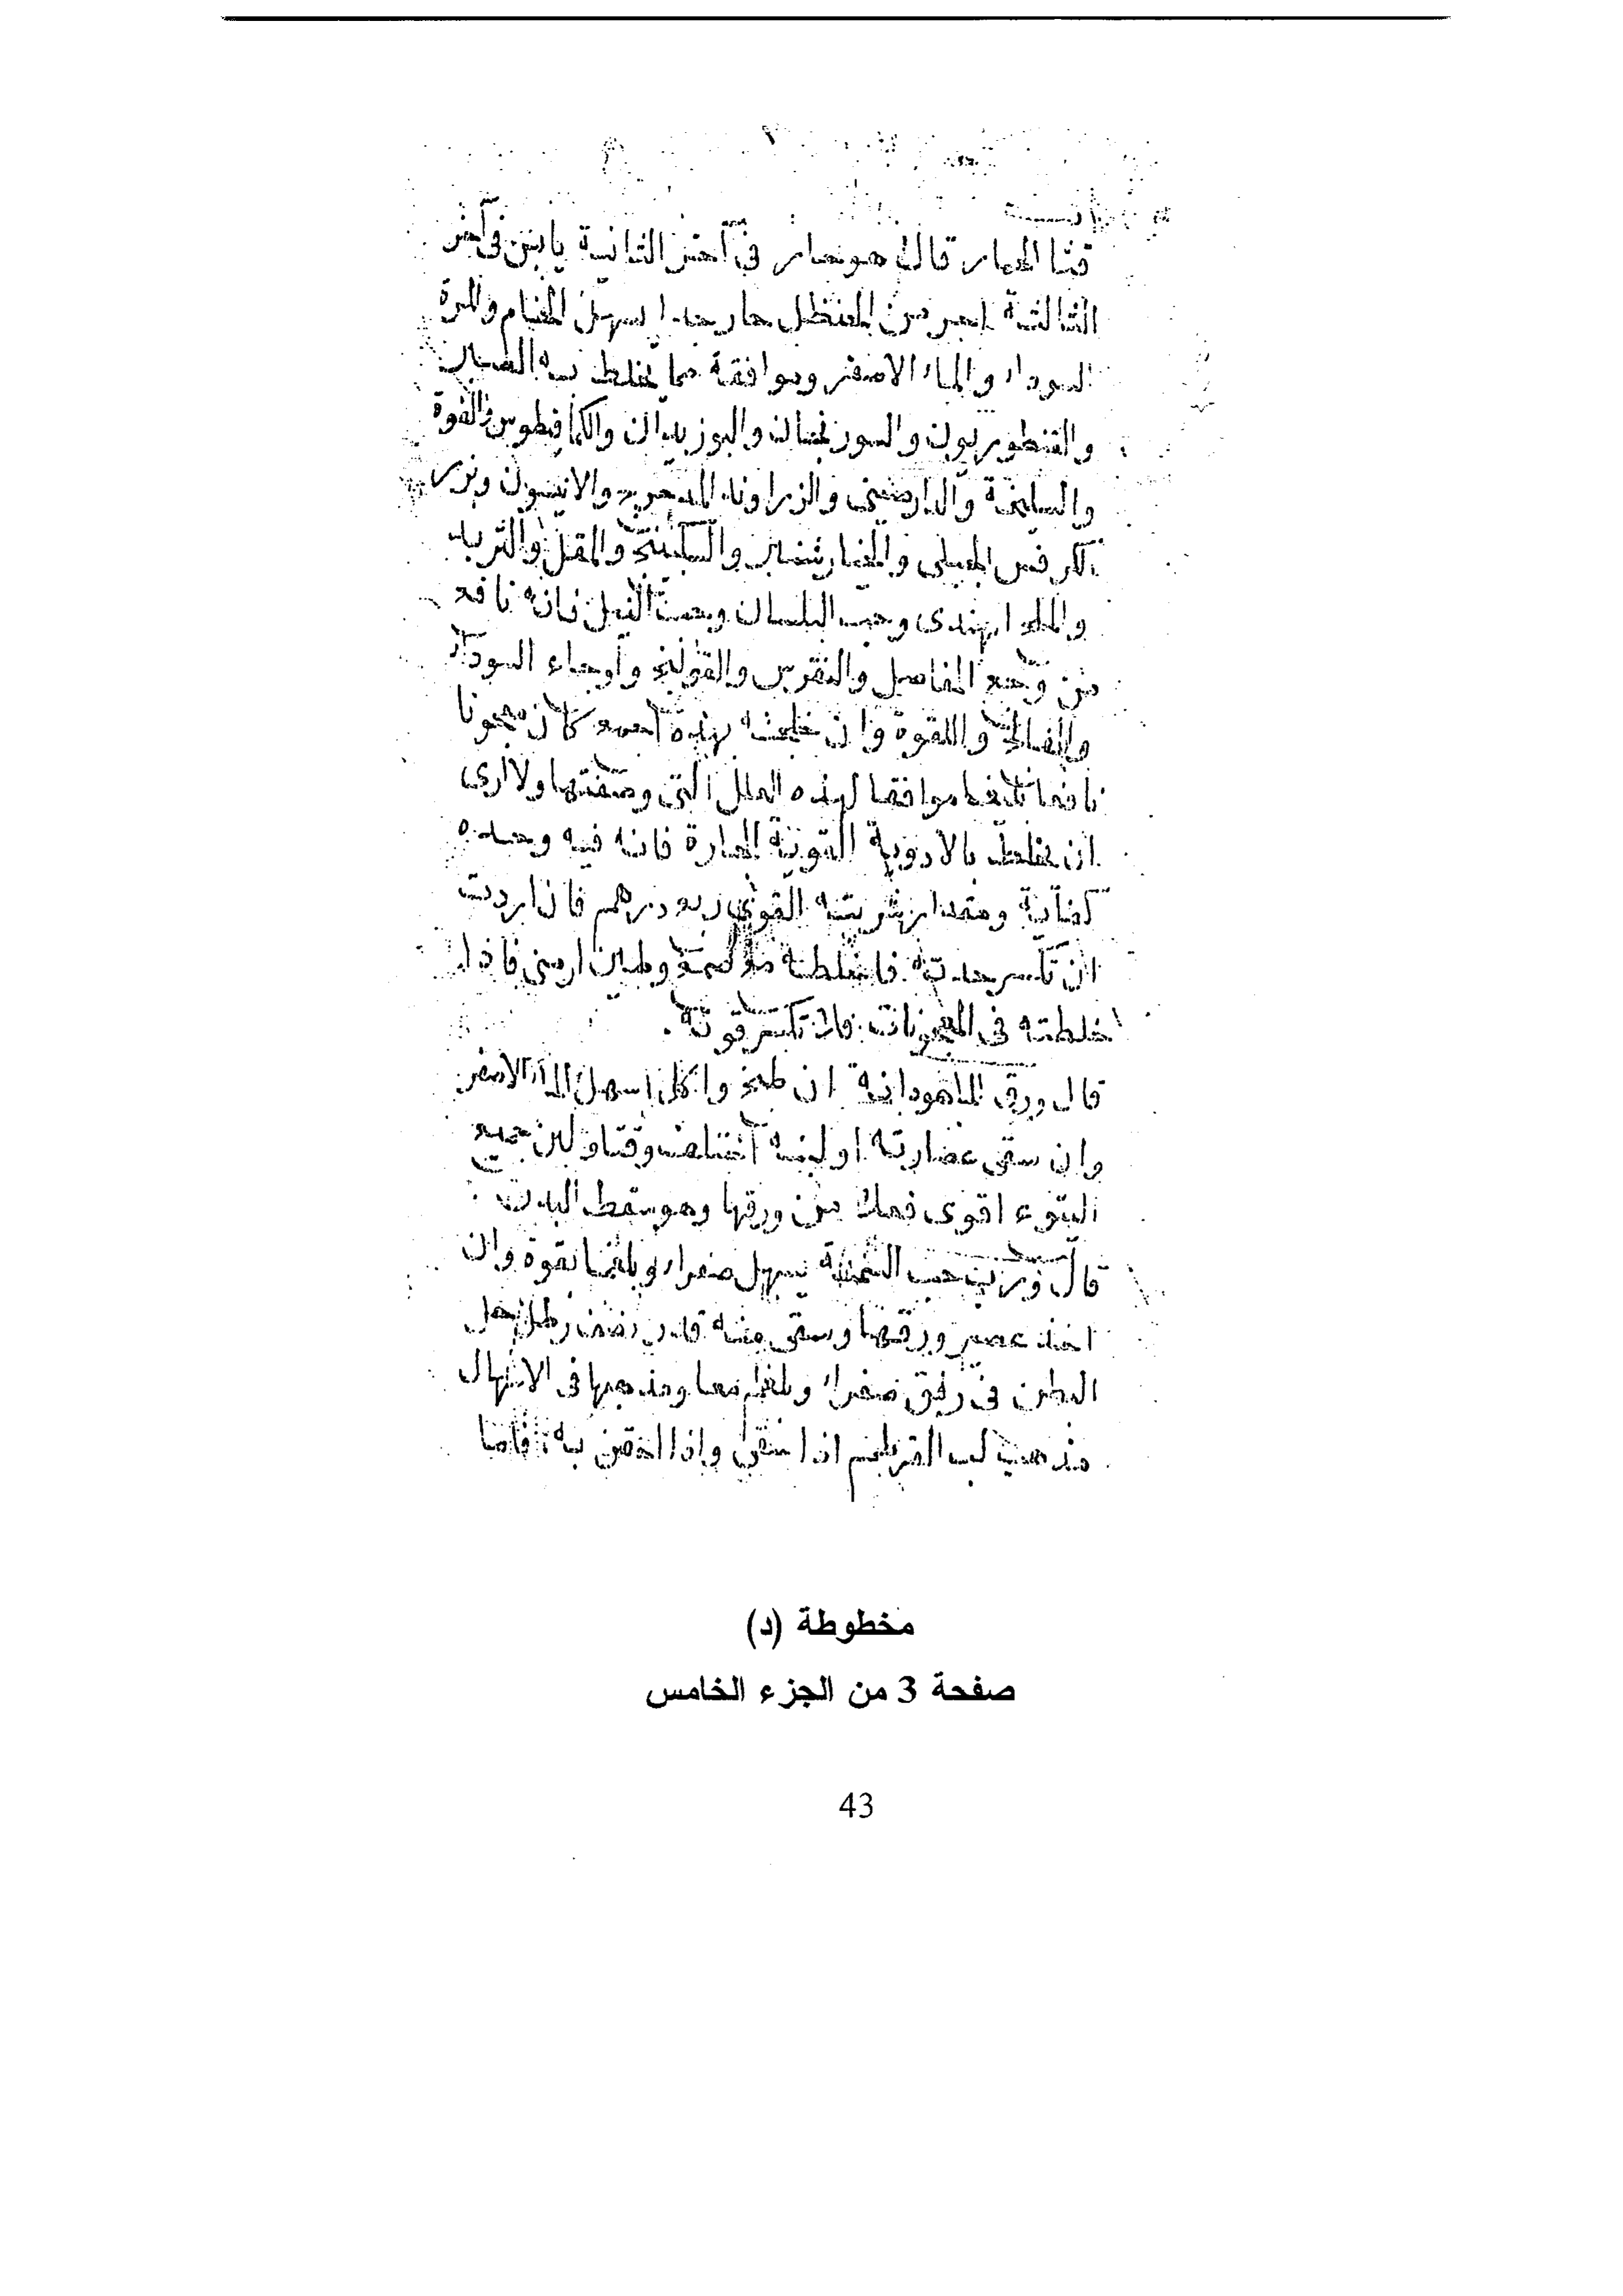 قثا الحمار قال هو حار في آخر الثانية يابس في آخر
الثالثة من الحنظل حار جدا يسهل الخام والمرة
السوداء والماء الاصفر وموافقة مما يخلط به الصبر
والقنطوريون والسورنجان والبوزيدان والكمافيطوس والفوة
والسليخة والدارصيني والزراوند المدحرج والانيسون وبزر
الكرفس الجبلي والخيارشنبر والسكبينج والمقل والتربد
والملح الهندي وحب البلسان وحب النيل فانه نافع
من وجع المفاصل والنقرس والقولنج وأوجاع السوداء
والفالج واللقوة وان خلطته بهذه كان معجونا
نافعا موافقا لهذه العلل التي وصفتها ولا ارى
ان يخلط بالادوية القوية الحارة فانه فيه وحده
كفاية ومقدار شربته القوي ربع درهم فان اردت
ان تكسر حدته فاخلطه وطين ارمني فاذا
خلطته في المعجونات فلا تكسر قوته.
قال ورق الماهودانة ان طبخ واكل اسهل الماء الاصفر
وان سقي عصارته او لبنه وقتا ولبن جميع
اليتوع اقوى فعلا من ورقها وهو يسقط البدن
قال حب يسهل صفراء وبلغما بقوة وان
اخذ عصير ورقها وسقي منه قدر نصف رطل حل
البطن في رفق صفراء وبلغم معا ومذهبها في الاسهال
مذهب لب القرطم اذا سقي واذا احتقن به فاما
مخطوطة (د)
صفحة 3 من الجزء الخامس
43